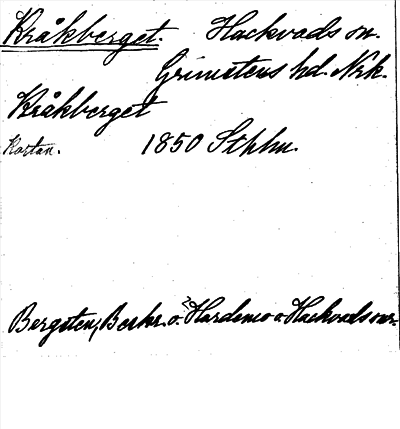 Kråkberget. Hackvads sn.
Grimstens hd. Nrk.
Kråkberget
Kartan. 1850 Stphn.
Bergsten, Beskr. o. Hardemo o. Hackvads snr.